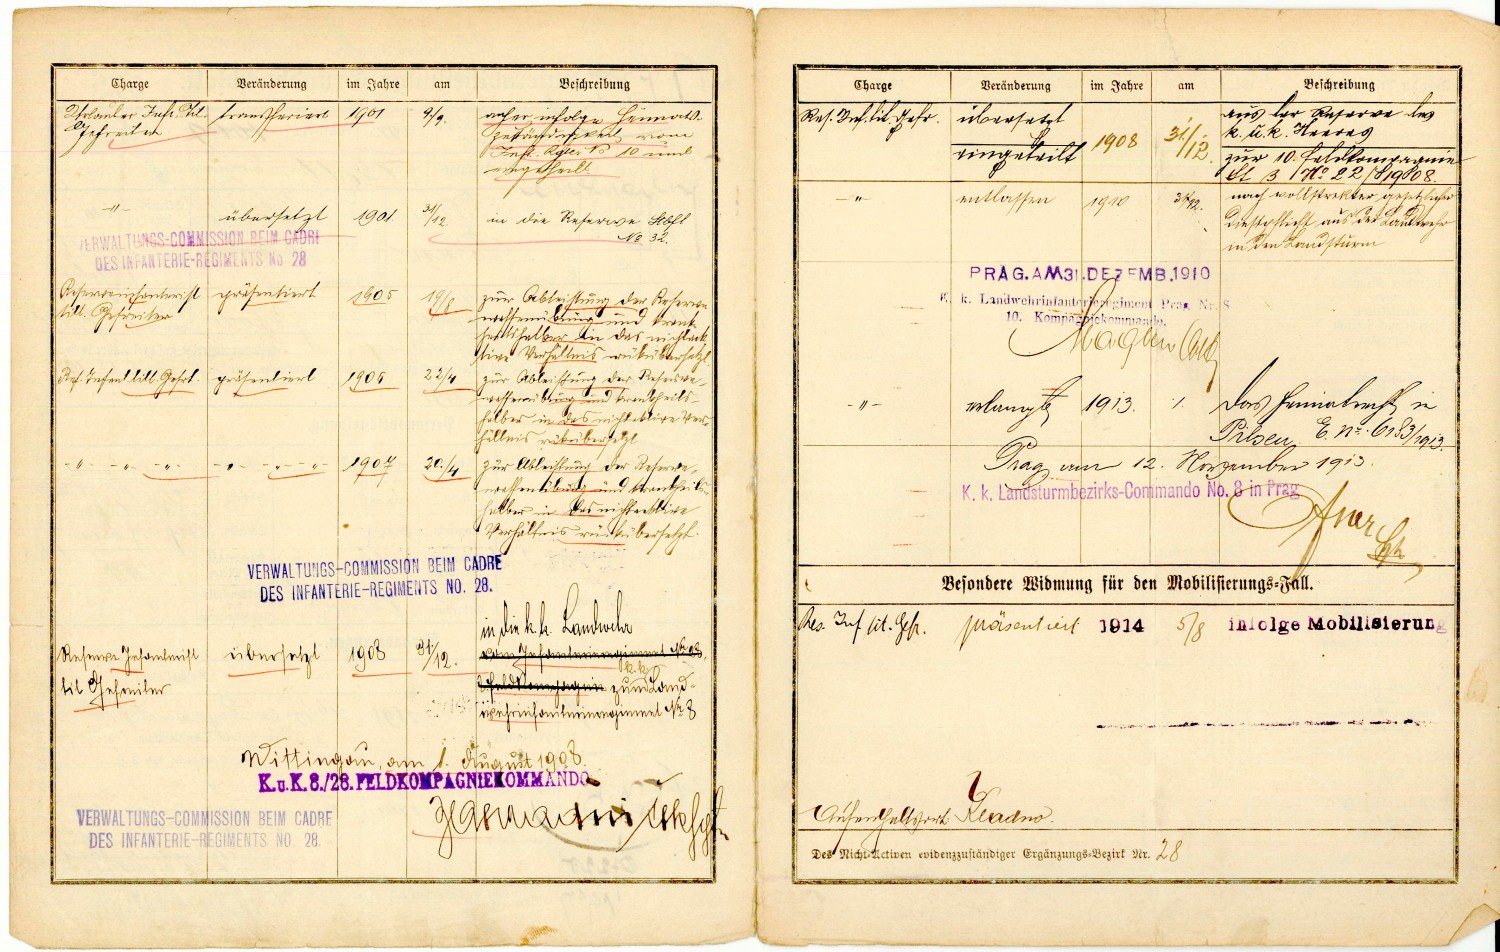 Charge Veränderung im Jahre am Beschreibung
Gefreiter transferiert 1901 9/9.
Inft. Rgtes No 10 und
-"- übersetzt 1901. 31/12. in die Reserve
No 32.
VERWALTUNGS-COMMISSION BEIM CADRE
DES INFANTERIE-REGIMENTS No 28
Reserveinfanterist präsentiert 1905 19/8 zur Ableistung der Reserve-
titl. Gefreiter waffenübung und krank-
heitshalber in das nichtak-
tive Verhältnis rückübersetzt
präsentiert 1906 22/4 zur Ableistung der Reserve-
waffenübung und krankheits-
halber in das nichtaktive Ver-
hältnis rückübersetzt
-"- -"- -"- -"- -"- -"- 1907 20./4 zur Ableistung der Reserve-
waffenübung und krankheits-
halber in das nichtaktive
Verhältnis rückübersetzt
VERWALTUNGS-COMMISSION BEIM CADRE
DES INFANTERIE-REGIMENTS NO. 28.
in die k.k. Landwehr
Reserve Infanterist übersetzt 1908 31/12. vom Infanterieregiment No 28.
k.k.
tit Gefreiter zum Land-
wehrinfanterieregiment No 8
Wittingau, am 1. August 1908.
K.u.K. 8./28. FELDKOMPAGNIEKOMMANDO
VERWALTUNGS-COMMISSION BEIM CADRE
DES INFANTERIE-REGIMENTS NO. 28.
Charge Veränderung im Jahre am Beschreibung
Res. Inf. tit. Gefr. übersetzt 1908 31./12. aus der Reserve des
k. u. k. Heeres
eingeteilt zur 10. Feldkompagnie
No 22 / 1908.
-"- entlassen 1910 31/12. nach vollstreckter gesetzlicher
Dienstpflicht aus der Landwehr
in den Landsturm
PRAG. AM 31. DEZEMB. 1910
K. k. Landwehrinfanterieregiment Prag Nr. 8
10. Kompagniekommando.
-"- erlangte 1913. 1. Das Heimatrecht in
Pilsen. E. No. 6183/1913.
Prag am 12. November 1913.
K. k. Landsturmbezirks-Commando No. 8 in Prag
Besondere Widmung für den Mobilisierungs-Fall.
Res. Inf tit. Gefr. präsentiert 1914 5/8 infolge Mobilisierung
Aufenthaltsort Kladno.
Des Nicht-Activen evidenzzuständiger Ergänzungs-Bezirk Nr. 28